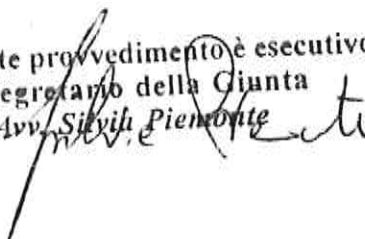 te provvedimento è esecutivo
egretario della Giunta
Avv. Silvili Piemonte